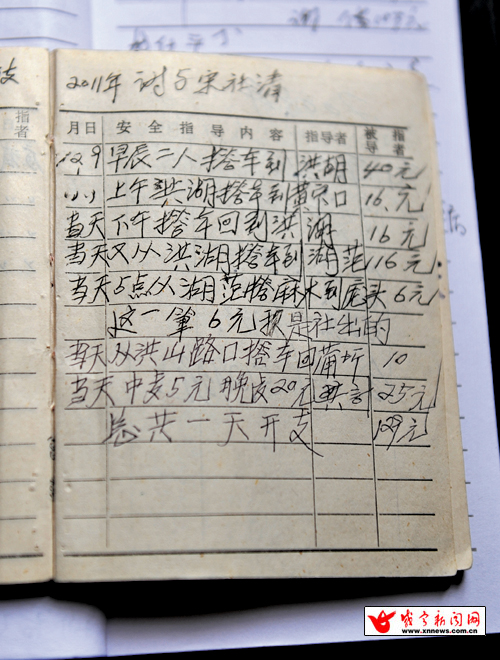 2011年 讨与宋社清
月日 安全指导内容 指导者 被指导者
12.9 早辰二人搭车到洪胡 40元
上午洪湖搭车到黄家口 16元
当天下午搭车回到洪湖 16元
当天又从洪湖搭车到湖范 16元
当天5点从湖范搭麻木到庄头 6元
这一笔6元钱是社出的
当天从洪山路口搭车回蒲圻 10
当天中麦5元 晚麦20元 共计 25元
总共一天开支 129元
支
指
者
咸宁新闻网
www.xnnews.com.cn